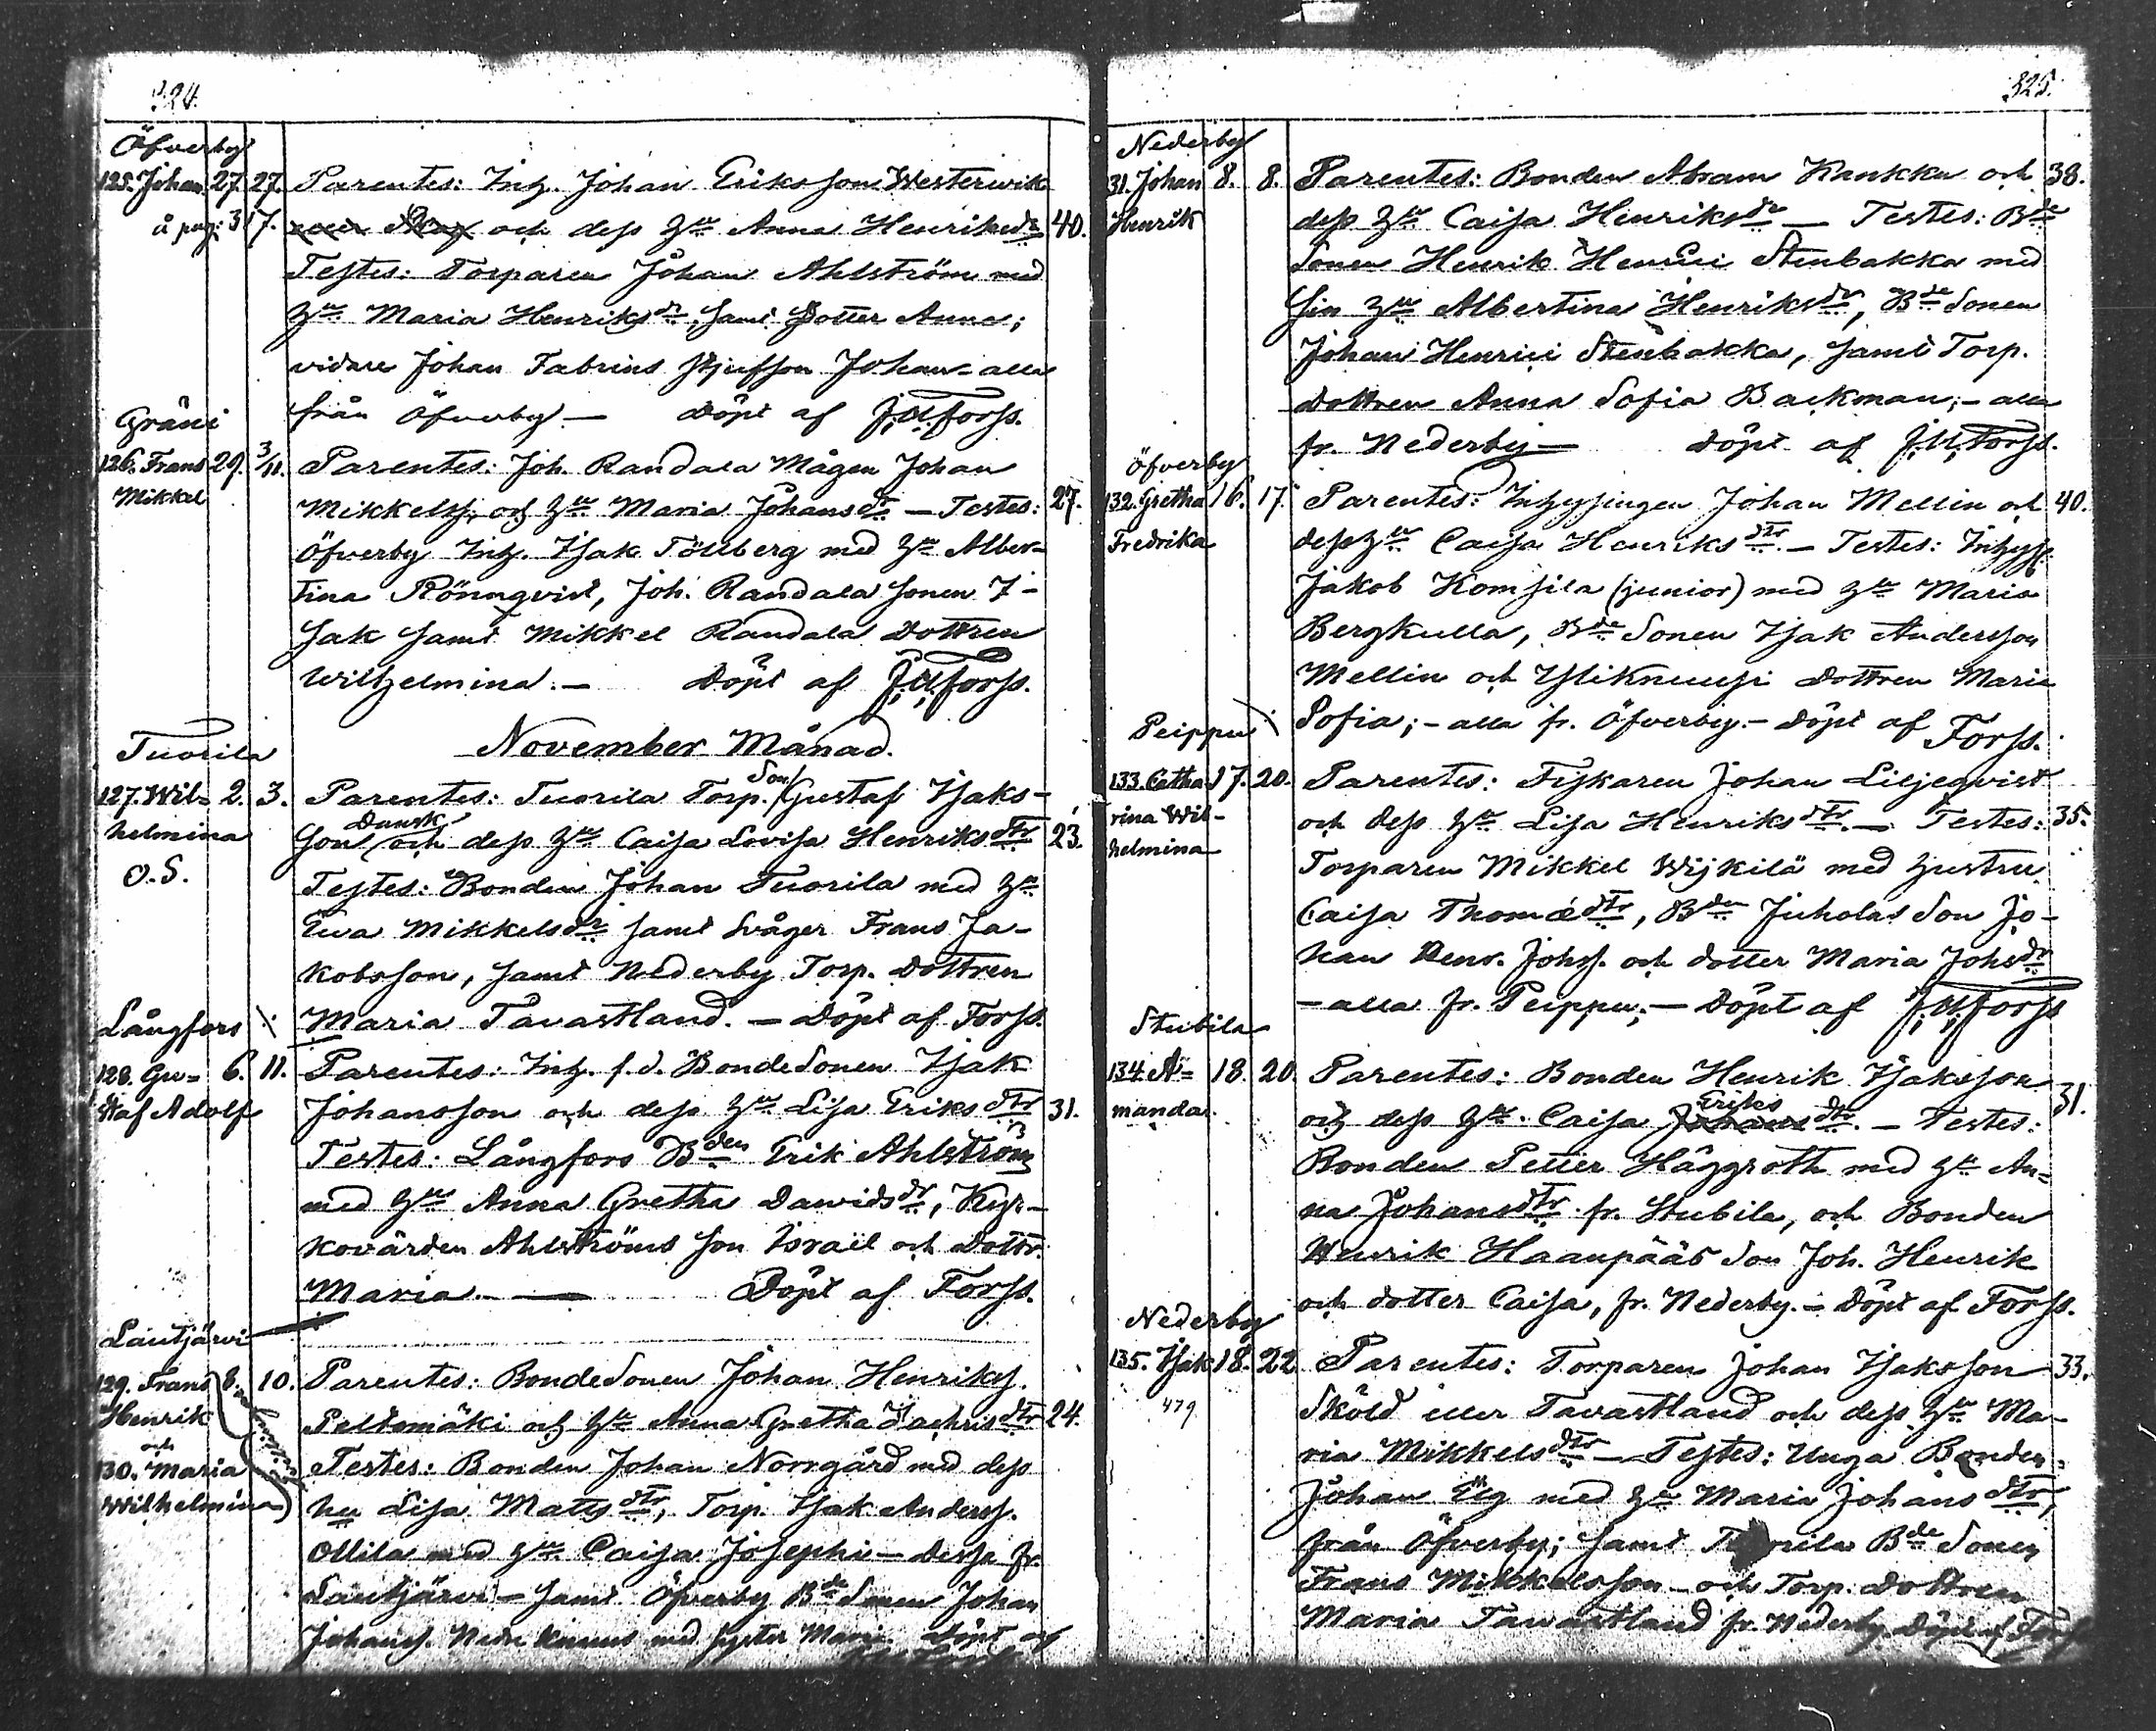 324.
Öfverby
125. Johan 27. 27. Parentes: Inh. Johan Eriksson Westerwik
å pag: 317. och dess hu Anna Henriksdr 40.
Testes: Torparen Johan Ahlström med
hu Maria Henriksdr, samt Dotter Anna;
vidare Johan Fabrins Johan - alla
från Öfverby — Döpt af J.M.Forss.
Gräni
126. Frans 29. 3/11. Parentes: Joh. Randala Mågen Johan
Mikkel Mikkelss. och hu Maria Johansdr — Testes: 27.
Öfverby Inh. Isak Töllberg med hu Alber-
tina Rönnqvist, Joh. Randala sonen I-
sak samt Mikkel Randala Dottren
Wilhelmina. — Döpt af J.M.Forss.
November Månad.
Tuorila
127. Wil- 2. 3. Parentes: Tuorila Torp. Son Gustaf Isaks-
helmina son Dansk och dess hu Caisa Lovisa Henriksdtr 23.
O.S. Testes: Bonden Johan Tuorila med hu
Ewa Mikkelsdr samt Svåger Frans Ja-
kobsson, samt Nederby Torp. Dottren
Maria Tavastland. — Döpt af Forss.
Långfors
128. Gu- 6. 11. Parentes: Inh. f.d. Bondesonen Isak
staf Adolf Johansson och dess hu Lisa Eriksdtr 31.
Testes: Långfors Bden Erik Ahlström
med hu Anna Gretha Dawidsdr, Kyr-
kovärden Ahlströms son Israël och Dottr.
Maria. — Döpt af Forss.
Lautjärvi
129. Frans 8. 10. Parentes: Bondesonen Johan Henrikss.
Henrik Peltomäki och hu Anna Gretha Zachrisdtr 24.
och
130. Maria Testes: Bonden Johan Norrgård med dess
Wilhelmina hu Lisa Mattsdtr, Torp. Isak Anderss.
Ollila med hu Caisa Josephi — desse fr.
Lautjärvi — samt Öfverby Bde Sonen Johan
Johanss. Nedre med syster Maria. döpt af
325.
Nederby
31. Johan 8. 8. Parentes: Bonden Abram Kankka och 38.
Henrik dess hu Caisa Henriksdr — Testes: Bde
Sonen Henrik Henrici Stenbakka med
sin hu Albertina Henriksdr, Bde Sonen
Johan Henrici Stenbakka, samt Torp.
dottren Anna Sofia Backman; - alla
fr. Nederby — Döpt af J.M.Forss.
Öfverby
132. Gretha 16. 17. Parentes: Inhysingen Johan Mellin och 40.
Fredrika dess hu Caisa Henriksdtr. — Testes: Inhys.
Jakob Komsila (junior) med hu Maria
Bergkulla, Bde Sonen Isak Andersson
Mellin och Yliknuusi Dottren Maria
Sofia; - alla fr. Öfverby. - Döpt af Forss.
Peippu
133. Catha- 17. 20. Parentes: Fiskaren Johan Liljeqvist
rina Wil- och dess hu Lisa Henriksdtr. — Testes: 35.
helmina Torparen Mikkel Wijkilä med hustru
Caisa Thomædtr, Bden Juholas Son Jo-
han Henr. Johss. och dotter Maria Johsdr
- alla fr. Peippu; — Döpt af J.M.Forss
Stubila
134 A- 18. 20. Parentes: Bonden Henrik Isaksson
manda. och dess hu. Caisa Eriks dtr. — Testes: 31.
Bonden Petter Häggroth med hu An-
na Johansdtr. fr. Stubila, och Bonden
Henrik Haanpääs Son Joh. Henrik
och dotter Caisa, fr. Nederby. - Döpt af Forss.
Nederby
135. Isak 18. 22. Parentes: Torparen Johan Isaksson 33.
479 Sköld eller Tavastland och dess hu Ma-
ria Mikkelsdtr — Testes: Unga Bonden
Johan Elg med hu Maria Johansdtr,
från Öfverby; samt Tuorila Bde Sonen
Frans Mikkelsson och Torp. Dottren
Maria Tavastland fr. Nederby. Döpt af Forss